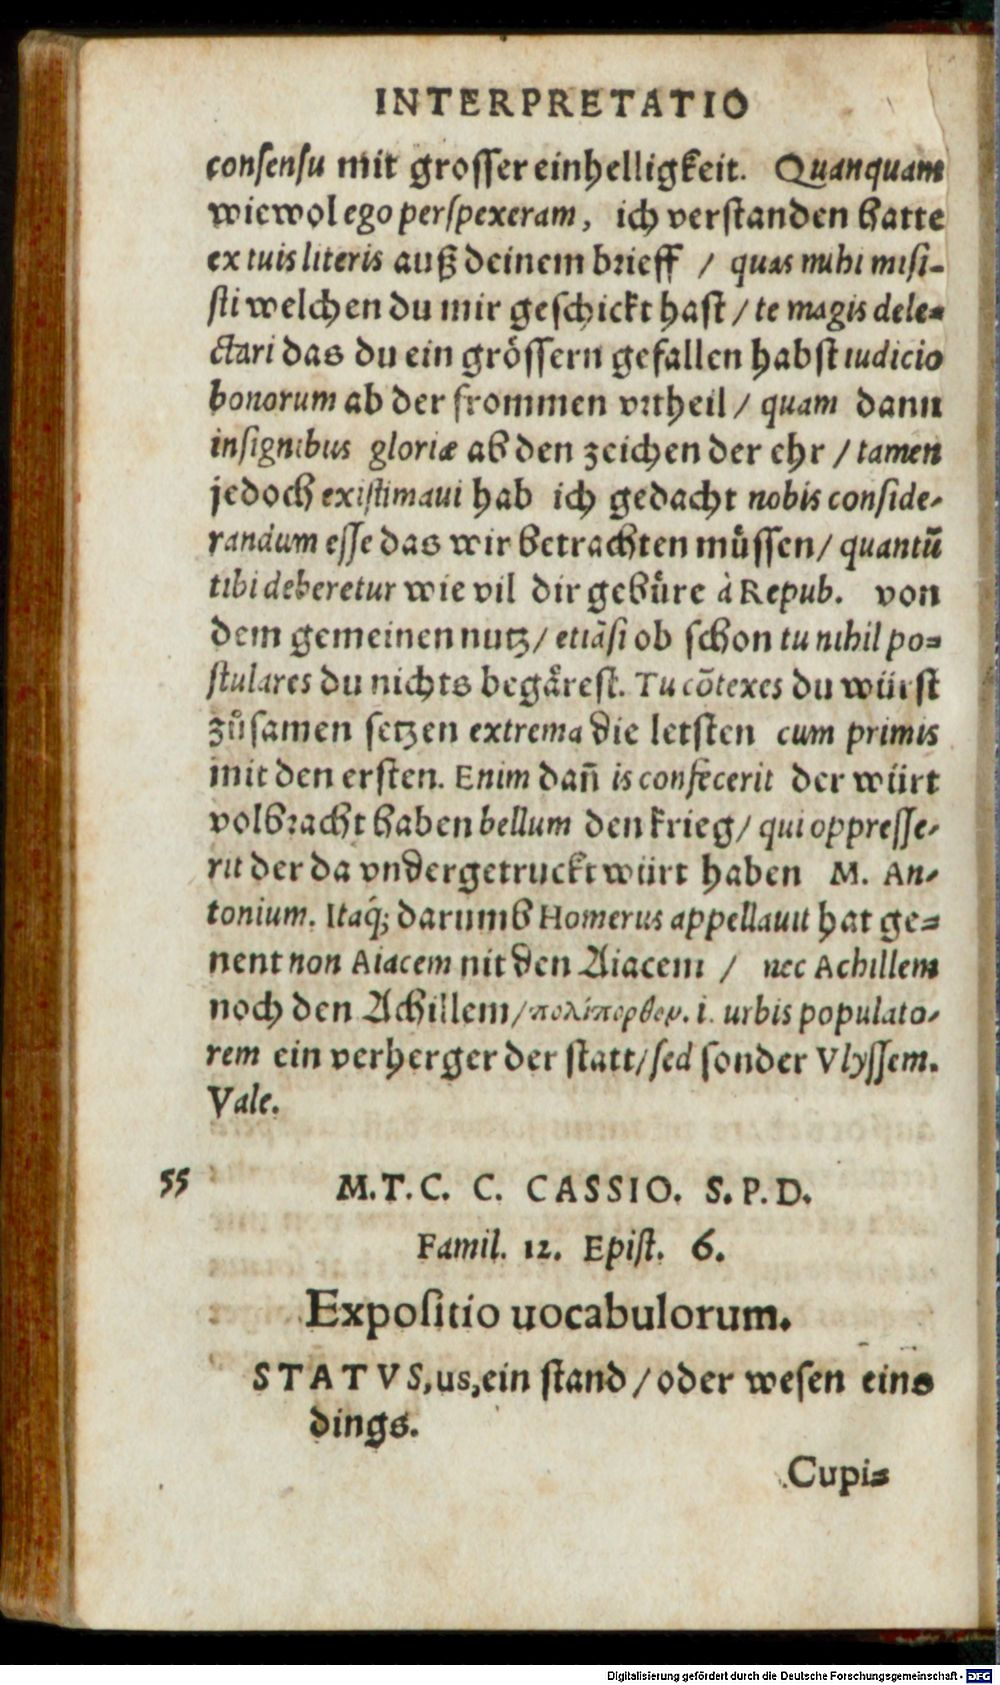 INTERPRETATIO
consensu mit grosser einhelligkeit. Quanquam
wiewol ego perspexeram, ich verstanden hatte
ex tuis literis auß deinem brieff / quas mihi misi-
sti welchen du mir geschickt hast / te magis dele-
ctari das du ein grössern gefallen habst iudicio
bonorum ab der frommen vrtheil / quam dann
insignibus gloriæ ab den zeichen der ehr / tamen
jedoch existimaui hab ich gedacht nobis conside-
randum esse das wir betrachten müssen / quantũ
tibi deberetur wie vil dir gebüre à Repub. von
dem gemeinen nutz / etiãsi ob schon tu nihil po-
stulares du nichts begärest. Tu cõtexes du würst
zůsamen setzen extrema die letsten cum primis
mit den ersten. Enim dañ is confecerit der würt
volbracht haben bellum den krieg / qui oppresse-
rit der da vndergetruckt würt haben M. An-
tonium. Itaq́; darumb Homerus appellauit hat ge-
nent non Aiacem nit den Aiacem / nec Achillem
noch den Achillem / πολίπορθον. i. urbis populato-
rem ein verherger der statt / sed sonder Vlyssem.
Vale.
55 M.T.C. C. CASSIO. S.P.D.
Famil. 12. Epist. 6.
Expositio uocabulorum.
STATVS, us, ein stand / oder wesen eins
dings.
Cupi-
Digitalisierung gefördert durch die Deutsche Forschungsgemeinschaft - DFG